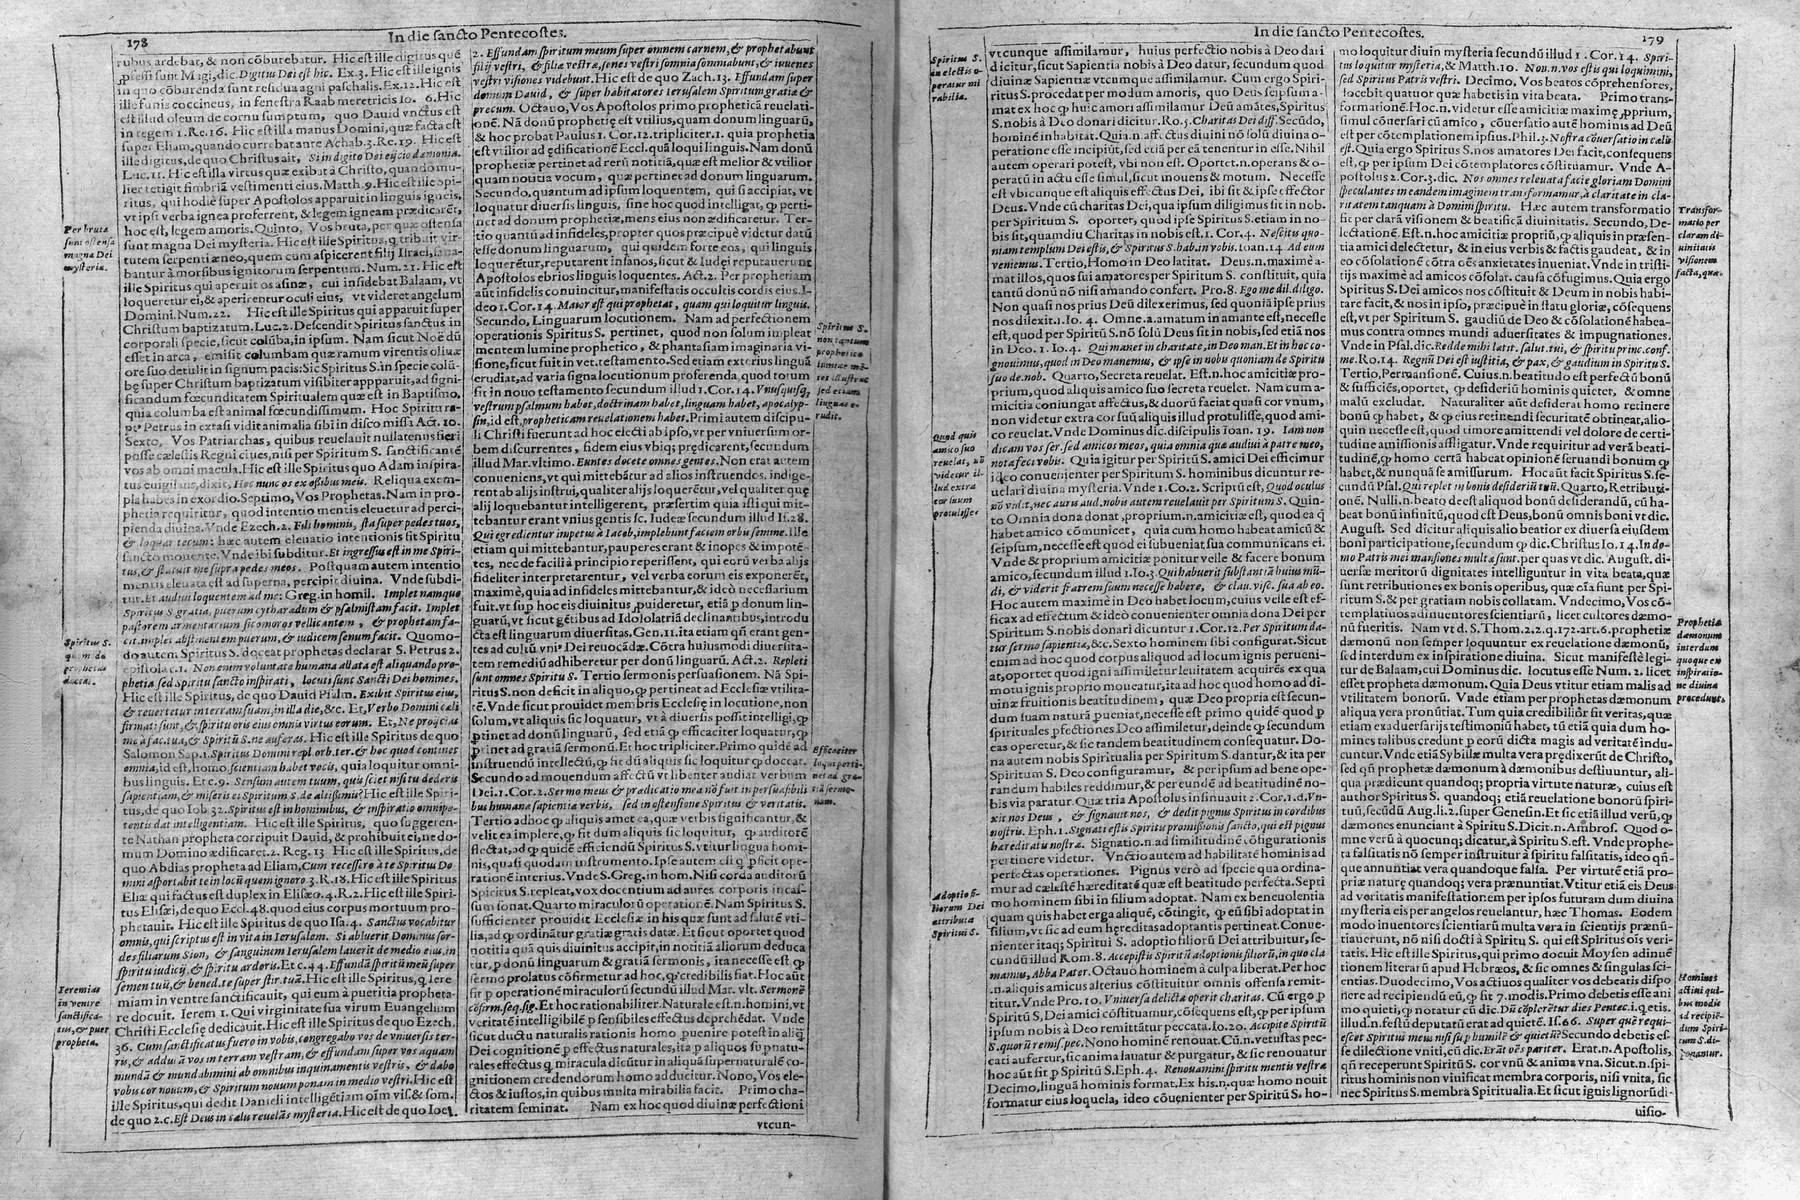 178
In die sancto Pentecostes.
rubus ardebat, & non cõburebatur. Hic est ille digitus quẽ
ꝓfessi sunt Magi, dic. Digitus Dei est hic. Ex. 3. Hic est ille ignis
in quo cõburenda sunt residua agni paschalis. Ex. 12. Hic est
ille funis coccineus, in fenestra Raab meretricis Io. 6. Hic
est illud oleum de cornu sumptum, quo Dauid vnctus est
in regem 1. Re. 16. Hic est illa manus Domini, quæ facta est
super Eliam, quando currebat ante Achab. 3. Re. 19. Hic est
ille digitus, de quo Christus ait, Si in digito Dei eijcio dæmonia.
Luc. 11. Hic est illa virtus quæ exibat à Christo, quando mu-
lier tetigit fimbriã vestimenti eius. Matth. 9. Hic est ille spi-
ritus, qui hodiè super Apostolos apparuit in linguis igneis,
vt ipsi verba ignea proferrent, & legem igneam prædicarẽt,
hoc est, legem amoris. Quinto, Vos bruta, per quæ ostensa
sunt magna Dei mysteria. Hic est ille Spiritus, q̃ tribuit vir-
tutem serpenti æneo, quem cum aspicerent filij Israel, sana-
bantur à morsibus ignitorum serpentum. Num. 21. Hic est
ille Spiritus qui aperuit os asinæ, cui insidebat Balaam, vt
loqueretur ei, & aperirentur oculi eius, vt videret angelum
Domini. Num. 22. Hic est ille Spiritus qui apparuit super
Christum baptizatum. Luc. 2. Descendit Spiritus sanctus in
corporali specie, sicut colũba, in ipsum. Nam sicut Noè dũ
esset in arca, emisit columbam quæ ramum virentis oliuæ
ore suo detulit in signum pacis: Sic Spiritus S. in specie colũ-
bę super Christum baptizatum visibiter appparuit, ad signi-
ficandum fœcunditatem Spiritualem quæ est in Baptismo,
quia columba est animal fœcundissimum. Hoc Spiritu ra-
ptꝰ Petrus in extasi vidit animalia sibi in disco missa Act. 10.
Sexto, Vos Patriarchas, quibus reuelauit nullatenus fieri
posse cælestis Regni ciues, nisi per Spiritum S. sanctificantẽ
vos ab omni macula. Hic est ille Spiritus quo Adam inspira-
tus euigilans, dixit, Hoc nunc os ex ossibus meis. Reliqua exem-
pla habes in exordio. Septimo, Vos Prophetas. Nam in pro-
phetia requiritur, quod intentio mentis eleuetur ad perci-
pienda diuina. Vnde Ezech. 2. Fili hominis, sta super pedes tuos,
& loquar tecum: hæc autem eleuatio intentionis sit Spiritu
sancto mouente. Vnde ibi subditur. Et ingressus est in me Spiri-
tus, & statuit me supra pedes meos. Postquam autem intentio
mentis eleuata est ad superna, percipit diuina. Vnde subdi-
tur. Et audiui loquentem ad me: Greg. in homil. Implet namque
Spiritus S. gratia, puerum cytharædum & psalmistam facit. Implet
pastorem armentarium sicomoros vellicantem, & prophetam fa-
cit. implet abstinentem puerum, & iudicem senum facit. Quomo-
do autem Spiritus S. doceat prophetas declarat S. Petrus 2.
epistola c. 1. Non enim voluntate humana allata est aliquando pro-
phetia sed Spiritu sancto inspirati, locuti sunt Sancti Dei homines.
Hic est ille Spiritus, de quo Dauid Psalm. Exibit Spiritus eius,
& reuertetur in terram suam, in illa die, &c. Et, Verbo Domini cæli
firmati sunt, & spiritu oris eius omnis virtus eorum. Et, Ne proijcias
me à fac. tua, & Spiritũ S. ne auferas. Hic est ille Spiritus de quo
Salomon Sap. 1. Spiritus Domini repl. orb. ter. & hoc quod continet
omnia, id est, homo. scientiam habet vocis, quia loquitur omni-
bus linguis. Et c. 9. Sensum autem tuum, quis sciet nisi tu dederis
sapientiam, & miseris ei Spiritum S. de altissimis? Hic est ille Spiri-
tus, de quo Iob 32. Spiritus est in hominibus, & inspiratio omnipo-
tentis dat intelligentiam. Hic est ille Spiritus, quo suggeren-
te Nathan propheta corripuit Dauid, & prohibuit ei, ne do-
mum Domino ædificaret. 2. Reg. 13 Hic est ille Spiritus, de
quo Abdias propheta ad Eliam, Cum recessero à te Spiritus Do
mini asportabit te in locũ quem ignoro. 3. R. 18. Hic est ille Spiritus
Eliæ qui factus est duplex in Elisæo. 4. R. 2. Hic est ille Spiri-
tus Elisæi, de quo Eccl. 48. quod eius corpus mortuum pro-
phetauit. Hic est ille Spiritus de quo Isa. 4. Sanctus vocabitur
omnis, qui scriptus est in vita in Ierusalem. Si abluerit Dominus sor-
des filiarum Sion, & sanguinem Ierusalem lauerit de medio eius, in
spiritu iudicij, & spiritu ardoris. Et c. 44. Effundã spiritũ meũ super
semen tuũ, & bened. te super stir. tuã. Hic est ille Spiritus, q̃ Iere
miam in ventre sanctificauit, qui eum à pueritia propheta-
re docuit. Ierem 1. Qui virginitate sua virum Euangelium
Christi Ecclesię dedicauit. Hic est ille Spiritus de quo Ezech.
36. Cum sanctificatus fuero in vobis, congregabo vos de vniuersis ter-
ris, & adducã vos in terram vestram, & effundam super vos aquam
mundã & mundabimini ab omnibus inquinamentis vestris, & dabo
vobis cor nouum, & Spiritum nouum ponam in medio vestri. Hic est
ille Spiritus, qui dedit Danieli intelligẽtiam oĩm vis. & som.
de quo 2. c. Est Deus in cælu reuelãs mysteria. Hic est de quo Ioel.
Per bruta
sunt ostensa
magna Dei
mysteria.
Spiritus S.
quomodo
prophetas
doceat.
Ieremias
in ventre
sanctifica-
tus, & puer
propheta.
2. Effundam spiritum meum super omnem carnem, & prophetabunt
filij vestri, & filiæ vestræ, senes vestri somnia somniabunt, & iuuenes
vestri visiones videbunt. Hic est de quo Zach. 13. Effundam super
domum Dauid, & super habitatores Ierusalem Spiritum gratiæ &
precum. Octauo, Vos Apostolos primo propheticã reuelati-
onẽ. Nã donũ prophetię est vtilius, quam donum linguarũ,
& hoc probat Paulus 1. Cor. 12. tripliciter. 1. quia prophetia
est vtilior ad ędificationẽ Eccl. quã loqui linguis. Nam donũ
prophetiæ pertinet ad rerũ notitiã, quæ est melior & vtilior
quam notitia vocum, quæ pertinet ad donum linguarum.
Secundo, quantum ad ipsum loquentem, qui si accipiat, vt
loquatur diuersis linguis, sine hoc quod intelligat, ꝙ perti-
net ad donum prophetiæ, mens eius non ædificaretur. Ter-
tio quantũ ad infideles, propter quos præcipuè videtur datũ
esse donum linguarum, qui quidem forte eos, qui linguis
loquerẽtur, reputarent insanos, sicut & Iudęi reputauerunt
Apostolos ebrios linguis loquentes. Act. 2. Per prophetiam
aũt infidelis conuincitur, manifestatis occultis cordis eius. I-
deo 1. Cor. 14. Maior est qui prophetat, quam qui loquitur linguis.
Secundo, Linguarum locutionem. Nam ad perfectionem
operationis Spiritus S. pertinet, quod non solum impleat
mentem lumine prophetico, & phantasiam imaginaria vi-
sione, sicut fuit in vet. testamento. Sed etiam exterius linguã
erudiat, ad varia signa locutionum proferenda, quod totum
fit in nouo testamento secundum illud 1. Cor. 14. Vnusquisq;
vestrum psalmum habet, doctrinam habet, linguam habet, apocalyp-
sin, id est, propheticam reuelationem habet. Primi autem discipu-
li Christi fuerunt ad hoc electi ab ipso, vt per vniuersum or-
bem discurrentes, fidem eius vbiq; prędicarent, secundum
illud Mar. vltimo. Euntes docete omnes gentes. Non erat autem
conueniens, vt qui mittebãtur ad alios instruendos, indige-
rent ab alijs instrui, qualiter alijs loquerẽtur, vel qualiter quę
alij loquebantur intelligerent, præsertim quia isti qui mit-
tebantur erant vnius gentis sc. Iudeæ secundum illud Is. 28.
Qui egredientur impetu à Iacob, implebunt faciem orbis semine. Ille
etiam qui mittebantur, pauperes erant & inopes & impotẽ-
tes, nec de facili à principio reperissent, qui eorũ verba alijs
fideliter interpretarentur, vel verba eorum eis exponerẽt,
maximè, quia ad infideles mittebantur, & ideò necessarium
fuit. vt sup hoc eis diuinitus ꝓuideretur, etiã ꝑ donum lin-
guarũ, vt sicut gẽtibus ad Idololatriã declinantibus, introdu
cta est linguarum diuersitas. Gen. 11. ita etiam qñ erant gen-
tes ad cultũ vniꝰ Dei reuocãdæ. Cõtra huiusmodi diuersita-
tem remediũ adhiberetur per donũ linguarũ. Act. 2. Repleti
sunt omnes Spiritu S. Tertio sermonis persuasionem. Nã Spi-
ritus S. non deficit in aliquo, ꝙ pertineat ad Ecclesiæ vtilita-
tẽ. Vnde sicut prouidet membris Ecclesię in locutione, non
solum, vt aliquis sic loquatur, vt à diuersis possit intelligi, ꝙ
ꝑtinet ad donũ linguarũ, sed etiã ꝙ efficaciter loquatur, ꝙ
ꝑtinet ad gratiã sermonũ. Et hoc tripliciter. Primo quidẽ ad
instruendũ intellectũ, ꝙ fit dũ aliquis sic loquitur ꝙ doccat.
Secundo ad mouendum affectũ vt libenter audiat verbum
Dei. 1. Cor. 2. Sermo meus & prædicatio mea nõ fuit in persuasibili
bus humanæ sapientiæ verbis, sed in ostensione Spiritus & veritatis.
Tertio ad hoc ꝙ aliquis amet ea, quæ verbis significantur, &
velit ea implere, ꝙ fit dum aliquis sic loquitur, ꝙ auditorẽ
flectat, ad ꝙ quidẽ efficiendũ Spiritus S. vtitur lingua homi-
nis, quasi quodam instrumento. Ipse autem est q̃ ꝑficit ope-
rationẽ interius. Vnde S. Greg. in hom. Nisi corda auditorũ
Spiritus S. repleat, vox docentium ad aures corporis incas-
sum sonat. Quarto miraculorũ operationẽ. Nam Spiritus S.
sufficienter prouidit Ecclesiæ in his quæ sunt ad salutẽ vti-
lia, ad ꝙ ordinãtur gratiæ gratis datæ. Et sicut oportet quod
notitia quã quis diuinitus accipit, in notitiã aliorum deduca
tur, ꝑ donũ linguarum & gratiã sermonis, ita necesse est ꝙ
sermo prolatus cõfirmetur ad hoc, ꝙ credibilis fiat. Hoc aũt
fit ꝑ operationẽ miraculorũ secundũ illud Mar. vlt. Sermonẽ
cõfirm. seq. sig. Et hoc rationabiliter. Naturale est. n. homini, vt
veritatẽ intelligibilẽ ꝑ sensibiles effectus deprehẽdat. Vnde
sicut ductu naturalis rationis homo ꝑuenire potest in aliq̃
Dei cognitionẽ ꝑ effectus naturales, ita ꝑ aliquos supnatu-
rales effectus q̃ miracula dicũtur in aliquã supernaturalẽ co-
gnitionem credendorum homo adducitur. Nono, Vos ele-
ctos & iustos, in quibus multa mirabilia facit. Primo cha-
ritatem seminat. Nam ex hoc quod diuinæ perfectioni
vtcun-
Spiritus S.
non tantum
prophetico
lumine mẽ-
tes illustrat
sed etiam
linguas e-
rudit.
Efficaciter
loqui perti-
net ad gra-
tiã sermo-
num.
In die sancto Pentecostes.
179
Spiritus S.
in electis o-
peratur mi
rabilia.
Quod quis
amico suo
reuelat, nõ
videtur il-
lud extra
cor suum
protulisse.
Adoptio fi-
liorum Dei
attributa
Spiritui S.
vtcunque assimilamur, huius perfectio nobis à Deo dari
dicitur, sicut Sapientia nobis à Deo datur, secundum quod
diuinæ Sapientiæ vtcumque assimilamur. Cum ergo Spiri-
ritus S. procedat per modum amoris, quo Deus seipsum a-
mat ex hoc ꝙ huic amori assimilamur Deũ amãtes, Spiritus
S. nobis à Deo donari dicitur. Ro. 5. Charitas Dei diff. Secũdo,
hominẽ inhabitat. Quia. n. affectus diuini nõ solũ diuina o-
peratione esse incipiũt, sed etiã per eã tenentur in esse. Nihil
autem operari potest, vbi non est. Oportet. n. operans & o-
peratũ in actu esse simul, sicut mouens & motum. Necesse
est vbicunque est aliquis effectus Dei, ibi sit & ipse effector
Deus. Vnde cũ charitas Dei, qua ipsum diligimus sit in nob.
per Spiritum S. oportet, quod ipse Spiritus S. etiam in no-
bis sit, quamdiu Charitas in nobis est. 1. Cor. 4. Nescitis quo-
niam templum Dei estis, & Spiritus S. hab. in vobis. Ioan. 14. Ad eum
veniemus. Tertio, Homo in Deo latitat. Deus. n. maximè a-
mat illos, quos sui amatores per Spiritum S. constituit, quia
tantũ donũ nõ nisi amando confert. Pro. 8. Ego me dil. diligo.
Non quasi nos prius Deũ dilexerimus, sed quoniã ipse prius
nos dilexit. 1. Io. 4. Omne. a. amatum in amante est, necesse
est, quod per Spiritũ S. nõ solũ Deus sit in nobis, sed etiã nos
in Deo. 1. Io. 4. Qui manet in charitate, in Deo man. Et in hoc co-
gnouimus, quod in Deo manemus, & ipse in nobis quoniam de Spiritu
suo de. nob. Quarto, Secreta reuelat. Est. n. hoc amicitiæ pro-
prium, quod aliquis amico suo secreta reuelet. Nam cum a-
micitia coniungat affectus, & duorũ faciat quasi cor vnum,
non videtur extra cor suũ aliquis illud protulisse, quod ami-
co reuelat. Vnde Dominus dic. discipulis Ioan. 19. Iam non
dicam vos ser. sed amicos meos, quia omnia quæ audiui à patre meo,
nota feci vobis. Quia igitur per Spiritum S. amici Dei efficimur
ideo conuenienter per Spiritum S. hominibus dicuntur re-
uelari diuina mysteria. Vnde 1. Co 2. Scriptũ est, Quod oculus
nõ vidit, nec auris aud. nobis autem reuelauit per Spiritum S. Quin-
to Omnia dona donat, proprium. n. amicitiæ est, quod ea q̃
habet amico cõmunicet, quia cum homo habeat amicũ &
seipsum, necesse est quod ei subueniat, sua communicans ei.
Vnde & proprium amicitiæ ponitur velle & facere bonum
amico, secundum illud 1. Io. 3. Qui habuerit substantiã huius mũ-
di, & viderit fratrem suum necesse habere, & clau. visc. sua ab eo.
Hoc autem maximè in Deo habet locum, cuius velle est ef-
ficax ad effectum & ideò conuenienter omnia dona Dei per
Spiritum S. nobis donari dicuntur 1. Cor. 12. Per Spiritum da-
tur sermo sapientiæ, &c. Sexto hominem sibi configurat. Sicut
enim ad hoc quod corpus aliquod ad locum ignis perueni-
at, oportet quod igni assimiletur leuitatem acquirẽs ex qua
motu ignis proprio moueatur, ita ad hoc quod homo ad di-
uinæ fruitionis beatitudinem, quæ Deo propria est secun-
dum suam naturã ꝑueniat, necesse est primo quidẽ quod ꝑ
spirituales ꝑfectiones Deo assimiletur, deinde ꝙ secundum
eas operetur, & sic tandem beatitudinem consequatur. Do-
na autem nobis Spiritualia per Spiritum S. dantur, & ita per
Spiritum S. Deo configuramur, & per ipsum ad bene ope-
randum habiles reddimur, & per eundẽ ad beatitudinẽ no-
bis via paratur. Quæ tria Apostolus insinuauit 2. Cor. 1. d. Vn-
xit nos Deus, & signauit nos, & dedit pignus Spiritus in cordibus
nostris. Eph. 1. Signati estis Spiritu promissionis sancto, qui est pignus
hæreditatis nostræ. Signatio. n. ad similitudinẽ cõfigurationis
pertinere videtur. Vnctio autem ad habilitatẽ hominis ad
perfectas operationes. Pignus verò ad specie qua ordina-
mur ad cælestẽ hæreditatẽ quæ est beatitudo perfecta. Septi
mo hominem sibi in filium adoptat. Nam ex beneuolentia
quam quis habet erga aliquẽ, cõtingit, ꝙ eũ sibi adoptat in
filium, vt sic ad eum hęreditas adoptantis pertineat. Conue-
nienter itaq; Spiritui S. adoptio filiorũ Dei attribuitur, se-
cundũ illud Rom. 8. Accepistis Spiritũ adoptionis filiorũ, in quo cla
mamus, Abba Pater. Octauò hominem à culpa liberat. Per hoc
.n. aliquis amicus alterius cõstituitur omnis offensa remit-
titur. Vnde Pro. 10. Vniuersa delicta operit charitas. Cũ ergo ꝑ
Spiritũ S. Dei amici cõstituamur, cõsequens est, ꝙ per ipsum
ipsum nobis à Deo remittãtur peccata. Io. 20. Accipite Spiritũ
S. quorũ remis. pec. Nono hominẽ renouat. Cũ. n. vetustas pec-
cati aufertur, sic anima lauatur & purgatur, & sic renouatur
hoc aũt fit ꝑ Spiritũ S. Eph. 4. Renouamini spiritu mentis vestræ
Decimo, linguã hominis format. Ex his. n. quæ homo nouit
formatur eius loquela, ideo cõuenienter per Spiritũ S. ho-
mo loquitur diuin mysteria secundũ illud 1. Cor. 14. Spiri-
tus loquitur mysteria, & Matth. 10. Non. n. vos estis qui loquimini,
sed Spiritus Patris vestri. Decimo, Vos beatos cõprehensores,
docebit quatuor quæ habetis in vita beata. Primo trans-
formationẽ. Hoc. n. videtur esse amicitiæ maximẽ ꝓprium,
simul cõuersari cũ amico, cõuersatio autẽ hominis ad Deũ
est per cõtemplationem ipsius. Phil. 3. Nostra cõuersatio in cælis
est. Quia ergo Spiritus S. nos amatores Dei facit, consequens
est, ꝙ per ipsum Dei cõtemplatores cõstituamur. Vnde A-
postolus 2. Cor. 3. dic. Nos omnes reuelata facie gloriam Domini
speculantes in eandem imaginem transformamur, à claritate in cla-
ritatem tanquam à Domini spiritu. Hæc autem transformatio
fit per clarã visionem & beatificã diuinitatis. Secundo, De-
lectationẽ. Est. n. hoc amicitiæ propriũ, ꝙ aliquis in præsen-
tia amici delectetur, & in eius verbis & factis gaudeat, & in
eo cõsolationẽ cõtra oẽs anxietates inueniat. Vnde in tristi-
tijs maximè ad amicos cõsolat. causa cõfugimus. Quia ergo
Spiritus S. Dei amicos nos cõstituit & Deum in nobis habi-
tare facit, & nos in ipso, præcipuè in statu gloriæ, cõsequens
est, vt per Spiritum S. gaudiũ de Deo & cõsolationẽ habea-
mus contra omnes mundi aduersitates & impugnationes.
Vnde in Psal. dic. Redde mihi lætit. salut. tui, & spiritu princ. conf.
me. Ro. 14. Regnũ Dei est iustitia, & pax, & gaudium in Spiritu S.
Tertio, Permansionẽ. Cuius. n. beatitudo est perfectũ bonũ
& sufficiẽs, oportet, ꝙ desideriũ hominis quietet, & omne
malũ excludat. Naturaliter aũt desiderat homo retinere
bonũ ꝙ habet, & ꝙ eius retinendi securitatẽ obtineat, alio-
quin necesse est, quod timore amittendi vel dolore de certi-
tudine amissionis affligatur. Vnde requiritur ad verã beati-
tudinẽ, ꝙ homo certã habeat opinionẽ seruandi bonum ꝙ
habet, & nunquã se amissurum. Hoc aũt facit Spiritus S. se-
cundũ Psal. Qui replet in bonis desideriũ tuũ. Quarto, Retributi-
onẽ. Nulli. n. beato deest aliquod bonũ desiderandũ, cũ ha-
beat bonũ infinitũ, quod est Deus, bonũ omnis boni vt dic.
August. Sed dicitur aliquis alio beatior ex diuersa eiusdem
boni participatione, secundum ꝙ dic. Christus Io. 14. In do-
mo Patris mei mansiones multæ sunt. per quas vt dic. August. di-
uersæ meritorũ dignitates intelliguntur in vita beata, quæ
sunt retributiones ex bonis operibus, quæ oĩa fiunt per Spi-
ritum S. & per gratiam nobis collatam. Vndecimo, Vos cõ-
templatiuos adinuentores scientiarũ, licet cultores dæmo-
nũ fueritis. Nam vt d. S. Thom. 2. 2. q. 172. art. 6. prophetiæ
dæmonũ non semper loquuntur ex reuelatione dæmonũ,
sed interdum ex inspiratione diuina. Sicut manifestè legi-
tur de Balaam, cui Dominus dic. locutus esse Num. 2. licet
esset propheta dæmonum. Quia Deus vtitur etiam malis ad
vtilitatem bonorũ. Vnde etiam per prophetas dæmonum
aliqua vera pronũtiat. Tum quia credibilior sit veritas, quæ
etiam ex aduersarijs testimoniũ habet, tũ etiã quia dum ho-
mines talibus credunt ꝑ eorũ dicta magis ad veritatẽ indu-
cuntur. Vnde etiã Sybillæ multa vera prędixerũt de Christo,
sed qñ prophetæ dæmonum à dæmonibus destituuntur, ali-
qua prædicunt quandoq; propria virtute naturæ, cuius est
author Spiritus S. quandoq; etiã reuelatione bonorũ spiri-
tuũ, secũdũ Aug. li. 2. super Genesin. Et sic etiã illud verũ, ꝙ
dæmones enunciant à Spiritu S. Dicit. n. Ambros. Quod o-
mne verũ à quocunq; dicatur, à Spiritu S. est. Vnde prophe-
ta falsitatis nõ semper instruitur à spiritu falsitatis, ideo qñ-
que annuntiat vera quandoque falsa. Per virtutẽ etiã pro-
priæ naturę quandoq; vera prænuntiat. Vtitur etiã eis Deus
ad veritatis manifestationem per ipsos futuram dum diuina
mysteria eis per angelos reuelantur, hæc Thomas. Eodem
modo inuentores scientiarũ multa vera in scientijs prænũ-
tiauerunt, nõ nisi docti à Spiritu S. qui est Spiritus oĩs veri-
tatis. Hic est ille Spiritus, qui primo docuit Moysen adinuẽ
tionem literarũ apud Hebræos, & sic omnes & singulas sci-
entias. Duodecimo, Vos actiuos qualiter vos debeatis dispo
nere ad recipiendũ eũ, ꝙ fit 7. modis. Primo debetis esse ani
mo quieti, ꝙ notatur cũ dic. Dũ cõplerẽtur dies Pentec. i. q. etis.
illud. n. festũ deputatũ erat ad quietẽ. Is. 66. Super quẽ requi-
escet Spiritus meus nisi sup humilẽ & quietũ? Secundo debetis es-
se dilectione vniti, cũ dic. Erãt oẽs pariter. Erat. n. Apostolis,
qñ receperunt Spiritũ S. cor vnũ & anima vna. Sicut. n. spi-
ritus hominis non viuificat membra corporis, nisi vnita, sic
nec Spiritus S. membra Spiritualia. Et sicut ignis lignorũ di-
uisio-
Transfor-
matio per
claram di-
uinitatis
visionem
facta, quæ.
Prophetiæ
dæmonum
interdum
quoque ex
inspiratio-
ne diuina
procedunt.
Homines
actiui qui-
bus modis
ad recipiẽ-
dum Spiri-
tum S. di-
ponantur.